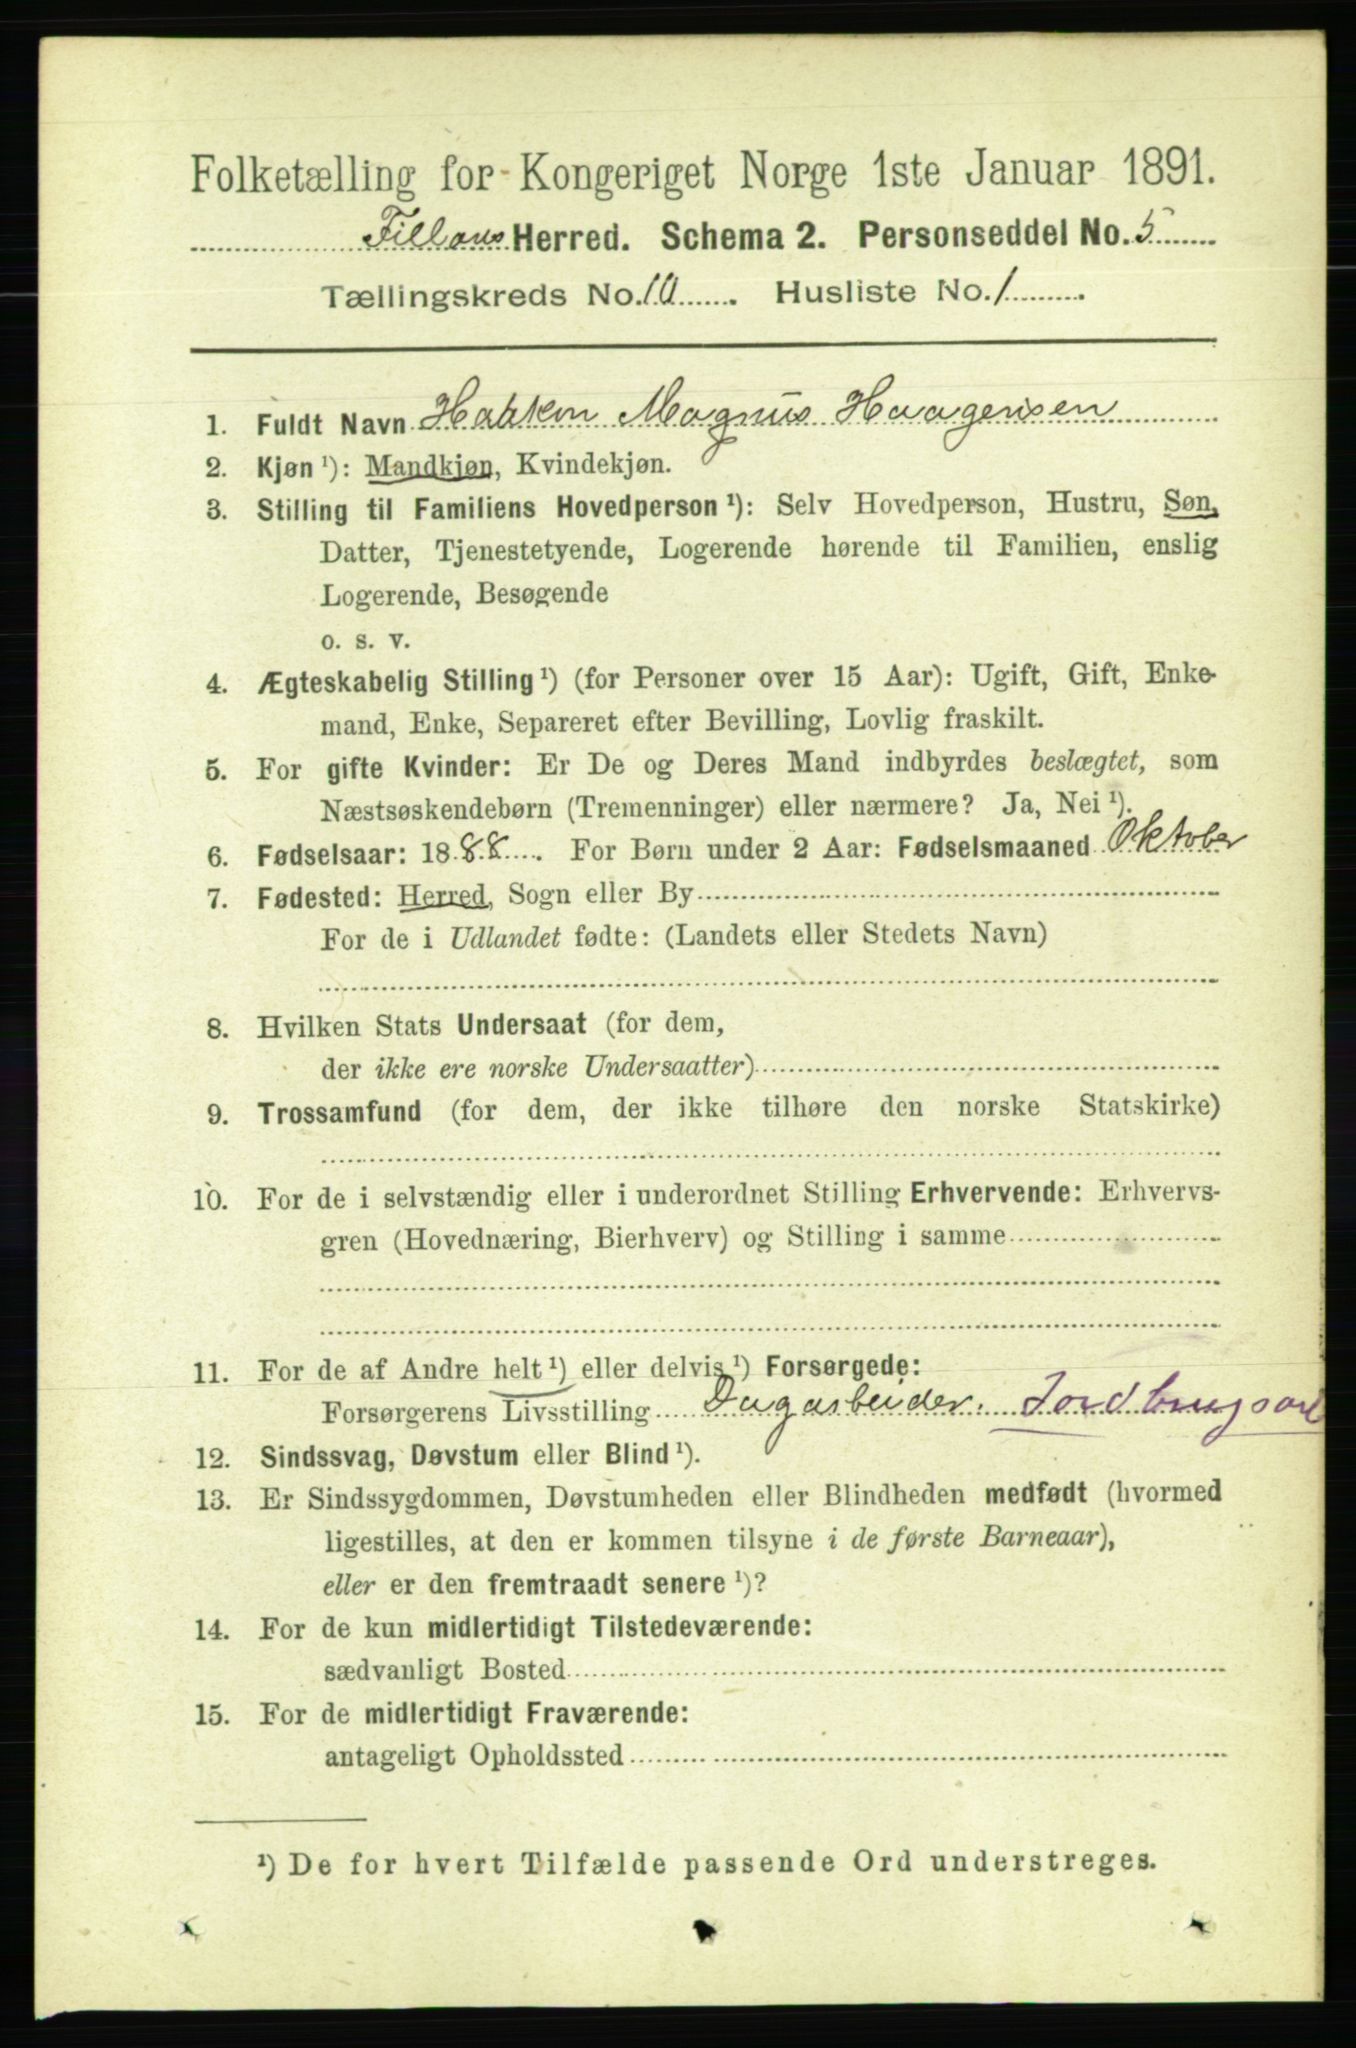 Folketælling for Kongeriget Norge 1ste Januar 1891.
Fillans Herred. Schema 2. Personseddel No. 5
Tællingskreds No. 10. Husliste No. 1.
1. Fuldt Navn Haakon Magnus Haagensen
2. Kjøn ¹): Mandkjøn, Kvindekjøn.
3. Stilling til Familiens Hovedperson ¹): Selv Hovedperson, Hustru, Søn,
Datter, Tjenestetyende, Logerende hørende til Familien, enslig
Logerende, Besøgende
o. s. v.
4. Ægteskabelig Stilling ¹) (for Personer over 15 Aar): Ugift, Gift, Enke-
mand, Enke, Separeret efter Bevilling, Lovlig fraskilt.
5. For gifte Kvinder: Er De og Deres Mand indbyrdes beslægtet, som
Næstsøskendebørn (Tremenninger) eller nærmere? Ja, Nei ¹).
6. Fødselsaar: 1888. For Børn under 2 Aar: Fødselsmaaned Oktober
7. Fødested: Herred, Sogn eller By
For de i Udlandet fødte: (Landets eller Stedets Navn)
8. Hvilken Stats Undersaat (for dem,
der ikke ere norske Undersaatter)
9. Trossamfund (for dem, der ikke tilhøre den norske Statskirke)
10. For de i selvstændig eller i underordnet Stilling Erhvervende: Erhvervs-
gren (Hovednæring, Bierhverv) og Stilling i samme
11. For de af Andre helt ¹) eller delvis ¹) Forsørgede:
Forsørgerens Livsstilling Dagarbeider. Jordbrugsarb
12. Sindssvag, Døvstum eller Blind ¹).
13. Er Sindssygdommen, Døvstumheden eller Blindheden medfødt (hvormed
ligestilles, at den er kommen tilsyne i de første Barneaar),
eller er den fremtraadt senere ¹)?
14. For de kun midlertidigt Tilstedeværende:
sædvanligt Bosted
15. For de midlertidigt Fraværende:
antageligt Opholdssted
¹) De for hvert Tilfælde passende Ord understreges.